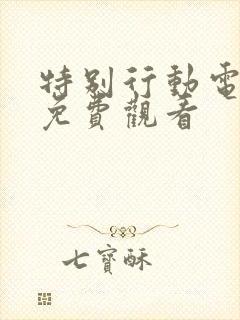 特别行動電
免費觀看
七寶酥